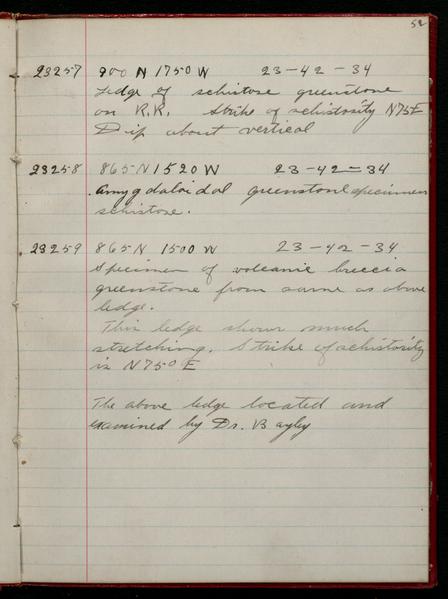 52
23257 900 N 1750 W 23-42-34
Ledge of schistose greenstone
on R.R. Strike of schistosity N75E
Dip about vertical
23258 865 N 1520 W 23-42-34
Amygdaloidal greenstone specimen
schistose.
23259 865 N 1500 W 23-42-34
Specimen of volcanic breccia
greenstone from same as above
ledge.
This ledge shows much
stretching. Strike of schistosity
is N75° E
The above ledge located and
examined by Dr. Bayley